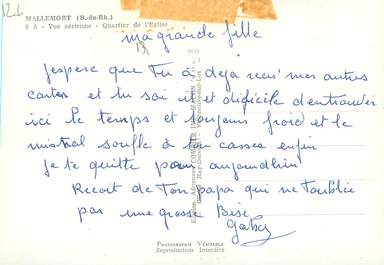 MALLEMORT (B.-du-Rh.)
8 A - Vue aérienne - Quartier de l'Eglise
ma grande fille
j'espere que tu a deja recu mes autres
cartes et tu sai it et dificile d'entrouver
ici le temps et toujours froid et le
mistral soufle à tou casses enfin
je te quitte pour aujourdhui
Recoit de ton papa qui ne t'oublie
pas une grosse Bise
Gaby
PHOTOGRAPHIE VÉRITABLE
Reproduction Interdite